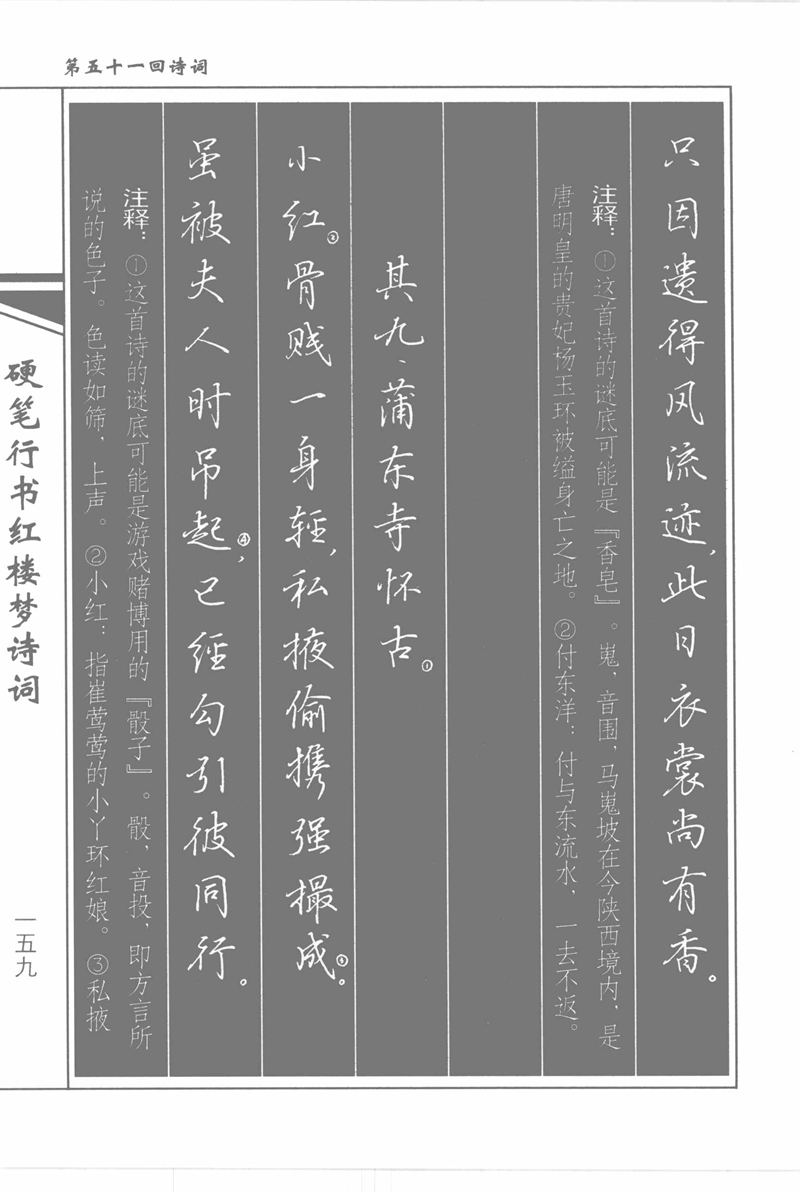 第五十一回诗词
只因遗得风流迹，此日衣裳尚有香。
注释：①这首诗的谜底可能是『香皂』。嵬，音围，马嵬坡在今陕西境内，是
唐明皇的贵妃杨玉环被缢身亡之地。②付东洋：付与东流水，一去不返。
其九·蒲东寺怀古①
小红②骨贱一身轻，私掖偷携强撮成③。
虽被夫人时吊起④，已经勾引彼同行。
注释：①这首诗的谜底可能是游戏赌博用的『骰子』。骰，音投，即方言所
说的色子。色读如筛，上声。②小红：指崔莺莺的小丫环红娘。③私掖
硬笔行书红楼梦诗词
一五九